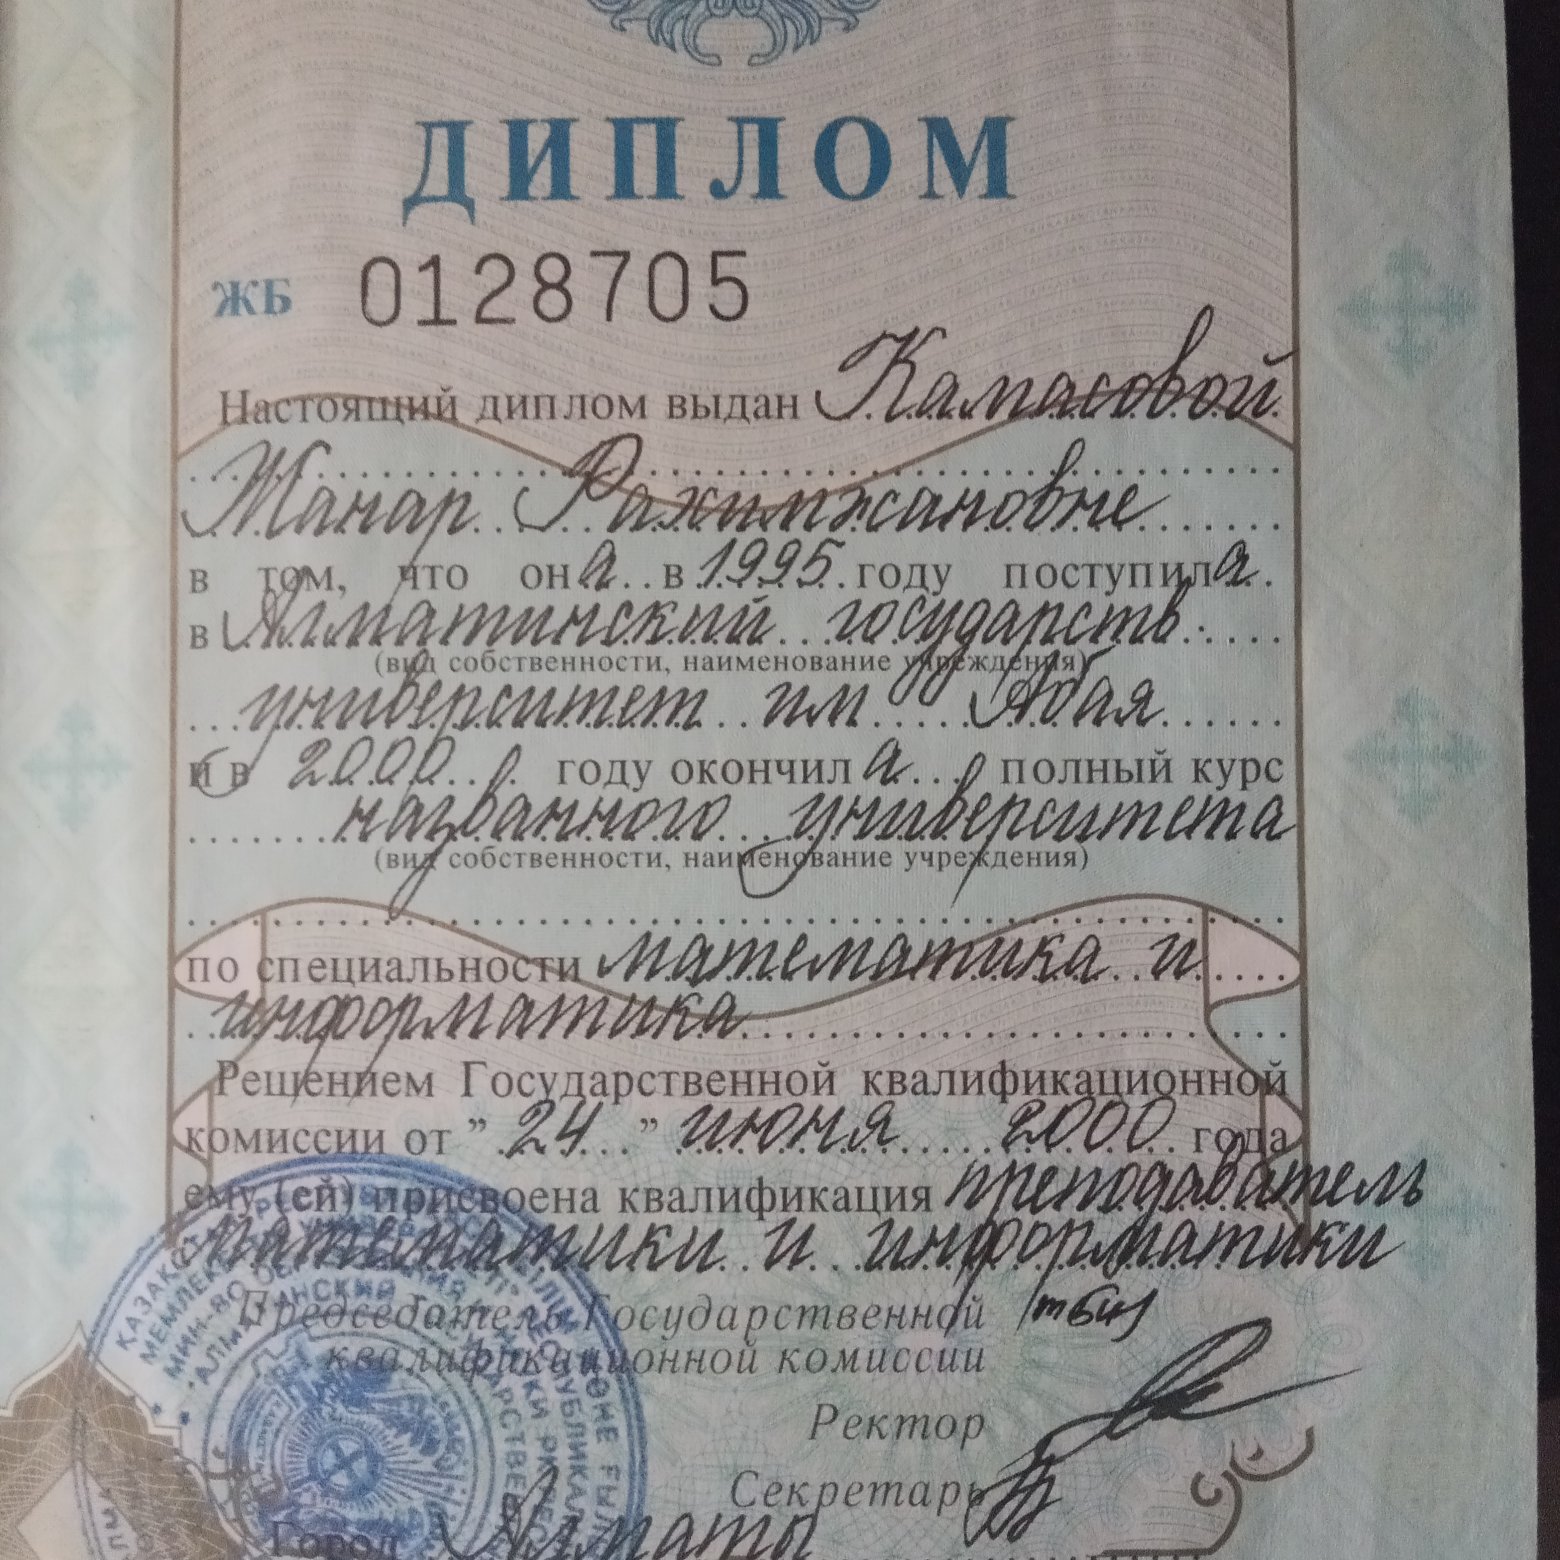 ДИПЛОМ
ЖБ 0128705
Настоящий диплом выдан Камасовой
Жанар Рахимжановне
в том, что она в 1995 году поступила
в Алматинский государств.
(вид собственности, наименование учреждения)
университет им Абая
и в 2000 году окончила полный курс
названного университета
(вид собственности, наименование учреждения)
по специальности математика и
информатика
Решением Государственной квалификационной
комиссии от "24" июня 2000 года
ему (ей) присвоена квалификация преподаватель
математики и информатики
Председатель Государственной
квалификационной комиссии
Ректор
Секретарь
Город Алматы